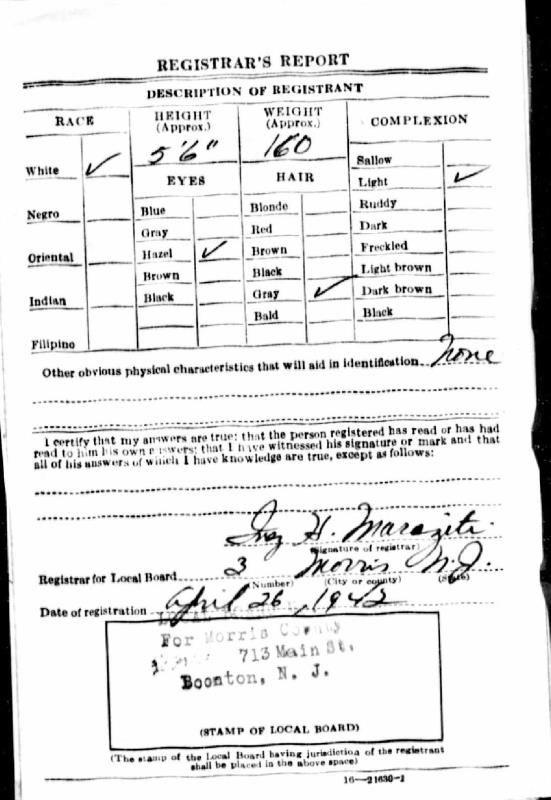 REGISTRAR'S REPORT
DESCRIPTION OF REGISTRANT
RACE
HEIGHT (Approx.)
WEIGHT (Approx.)
COMPLEXION
5'6"
160
White ✓
EYES
HAIR
Sallow
Light ✓
Negro
Blue
Blonde
Ruddy
Gray
Red
Dark
Oriental
Hazel ✓
Brown
Freckled
Brown
Black
Light brown
Indian
Black
Gray ✓
Dark brown
Bald
Black
Filipino
Other obvious physical characteristics that will aid in identification None
I certify that my answers are true; that the person registered has read or has had
read to him his own answers; that I have witnessed his signature or mark and that
all of his answers of which I have knowledge are true, except as follows:
Inez H. Maraziti
(Signature of registrar)
Registrar for Local Board 3 Morris N.J.
(Number) (City or county) (State)
Date of registration April 26, 1942
For Morris County
713 Main St.
Boonton, N. J.
(STAMP OF LOCAL BOARD)
(The stamp of the Local Board having jurisdiction of the registrant
shall be placed in the above space)
16—21630-1